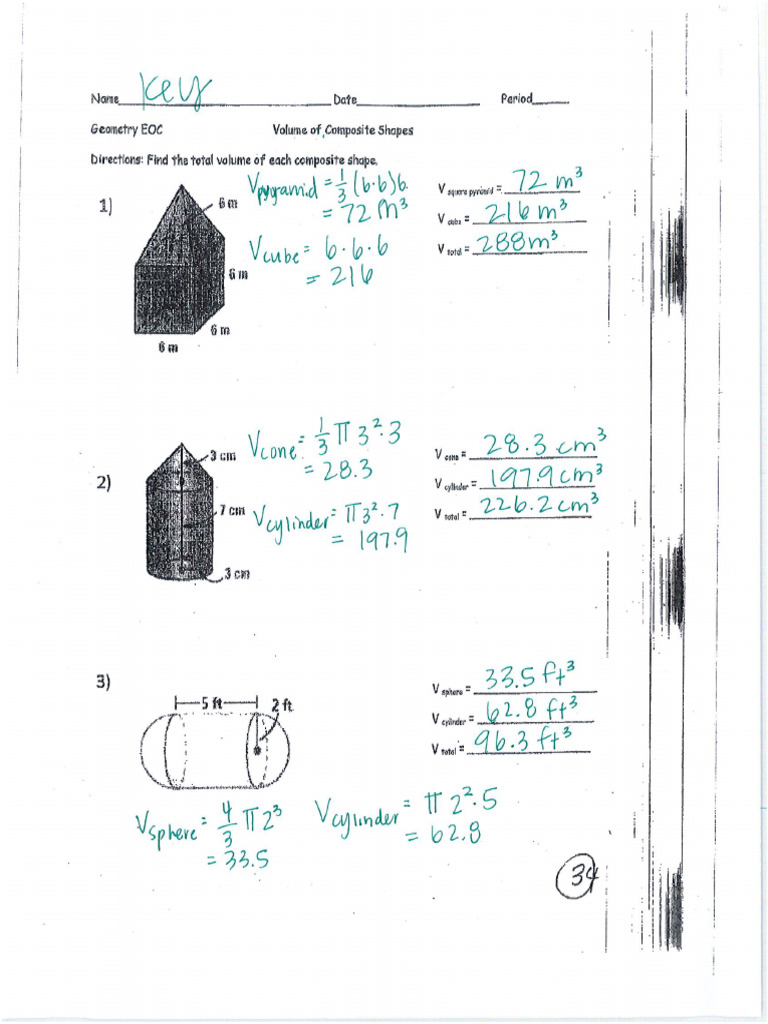 Name key Date Period
Geometry EOC Volume of Composite Shapes
Directions: Find the total volume of each composite shape.
1)
6 m
6 m
6 m
6 m
V pyramid = 1/3 (6·6)6
= 72 m³
V cube = 6·6·6
= 216
V square pyramid = 72 m³
V cube = 216 m³
V total = 288 m³
2)
3 cm
7 cm
3 cm
V cone = 1/3 π 3²·3
= 28.3
V cylinder = π3²·7
= 197.9
V cone = 28.3 cm³
V cylinder = 197.9 cm³
V total = 226.2 cm³
3)
5 ft 2 ft
V sphere = 33.5 ft³
V cylinder = 62.8 ft³
V total = 96.3 ft³
V sphere = 4/3 π2³
= 33.5
V cylinder = π2²·5
= 62.8
34